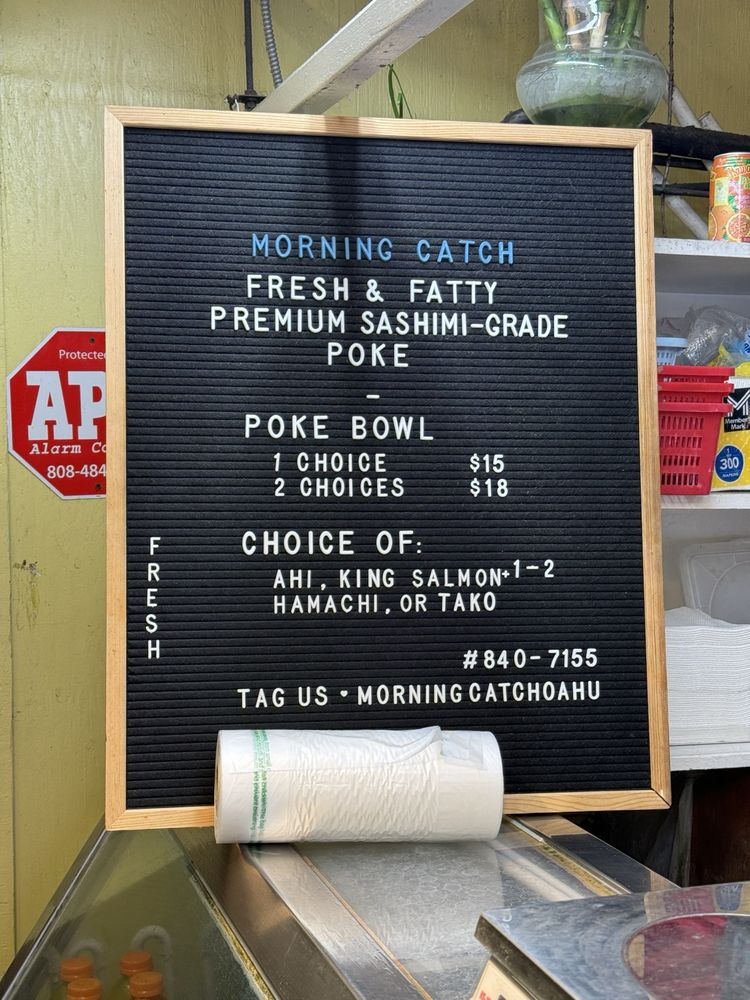 MORNING CATCH
FRESH & FATTY
PREMIUM SASHIMI-GRADE
POKE
-
POKE BOWL
1 CHOICE $15
2 CHOICES $18
CHOICE OF:
AHI, KING SALMON+1-2
HAMACHI, OR TAKO
FRESH
#840-7155
TAG US • MORNINGCATCHOAHU
Protected
AP
Alarm Co
808-484
Member's
Mark
300